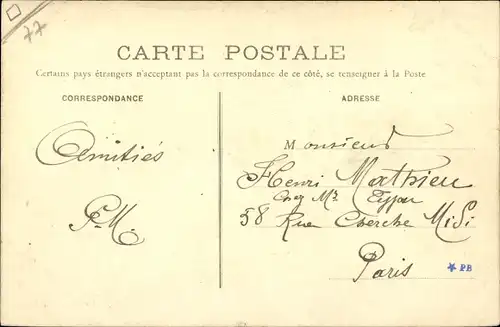 77
CARTE POSTALE
Certains pays étrangers n'acceptant pas la correspondance de ce côté, se renseigner à la Poste
CORRESPONDANCE
Amitiés
ADRESSE
Monsieur
Henri Mathieu
Chez Mr
58 Rue Cherche Midi
Paris
PB